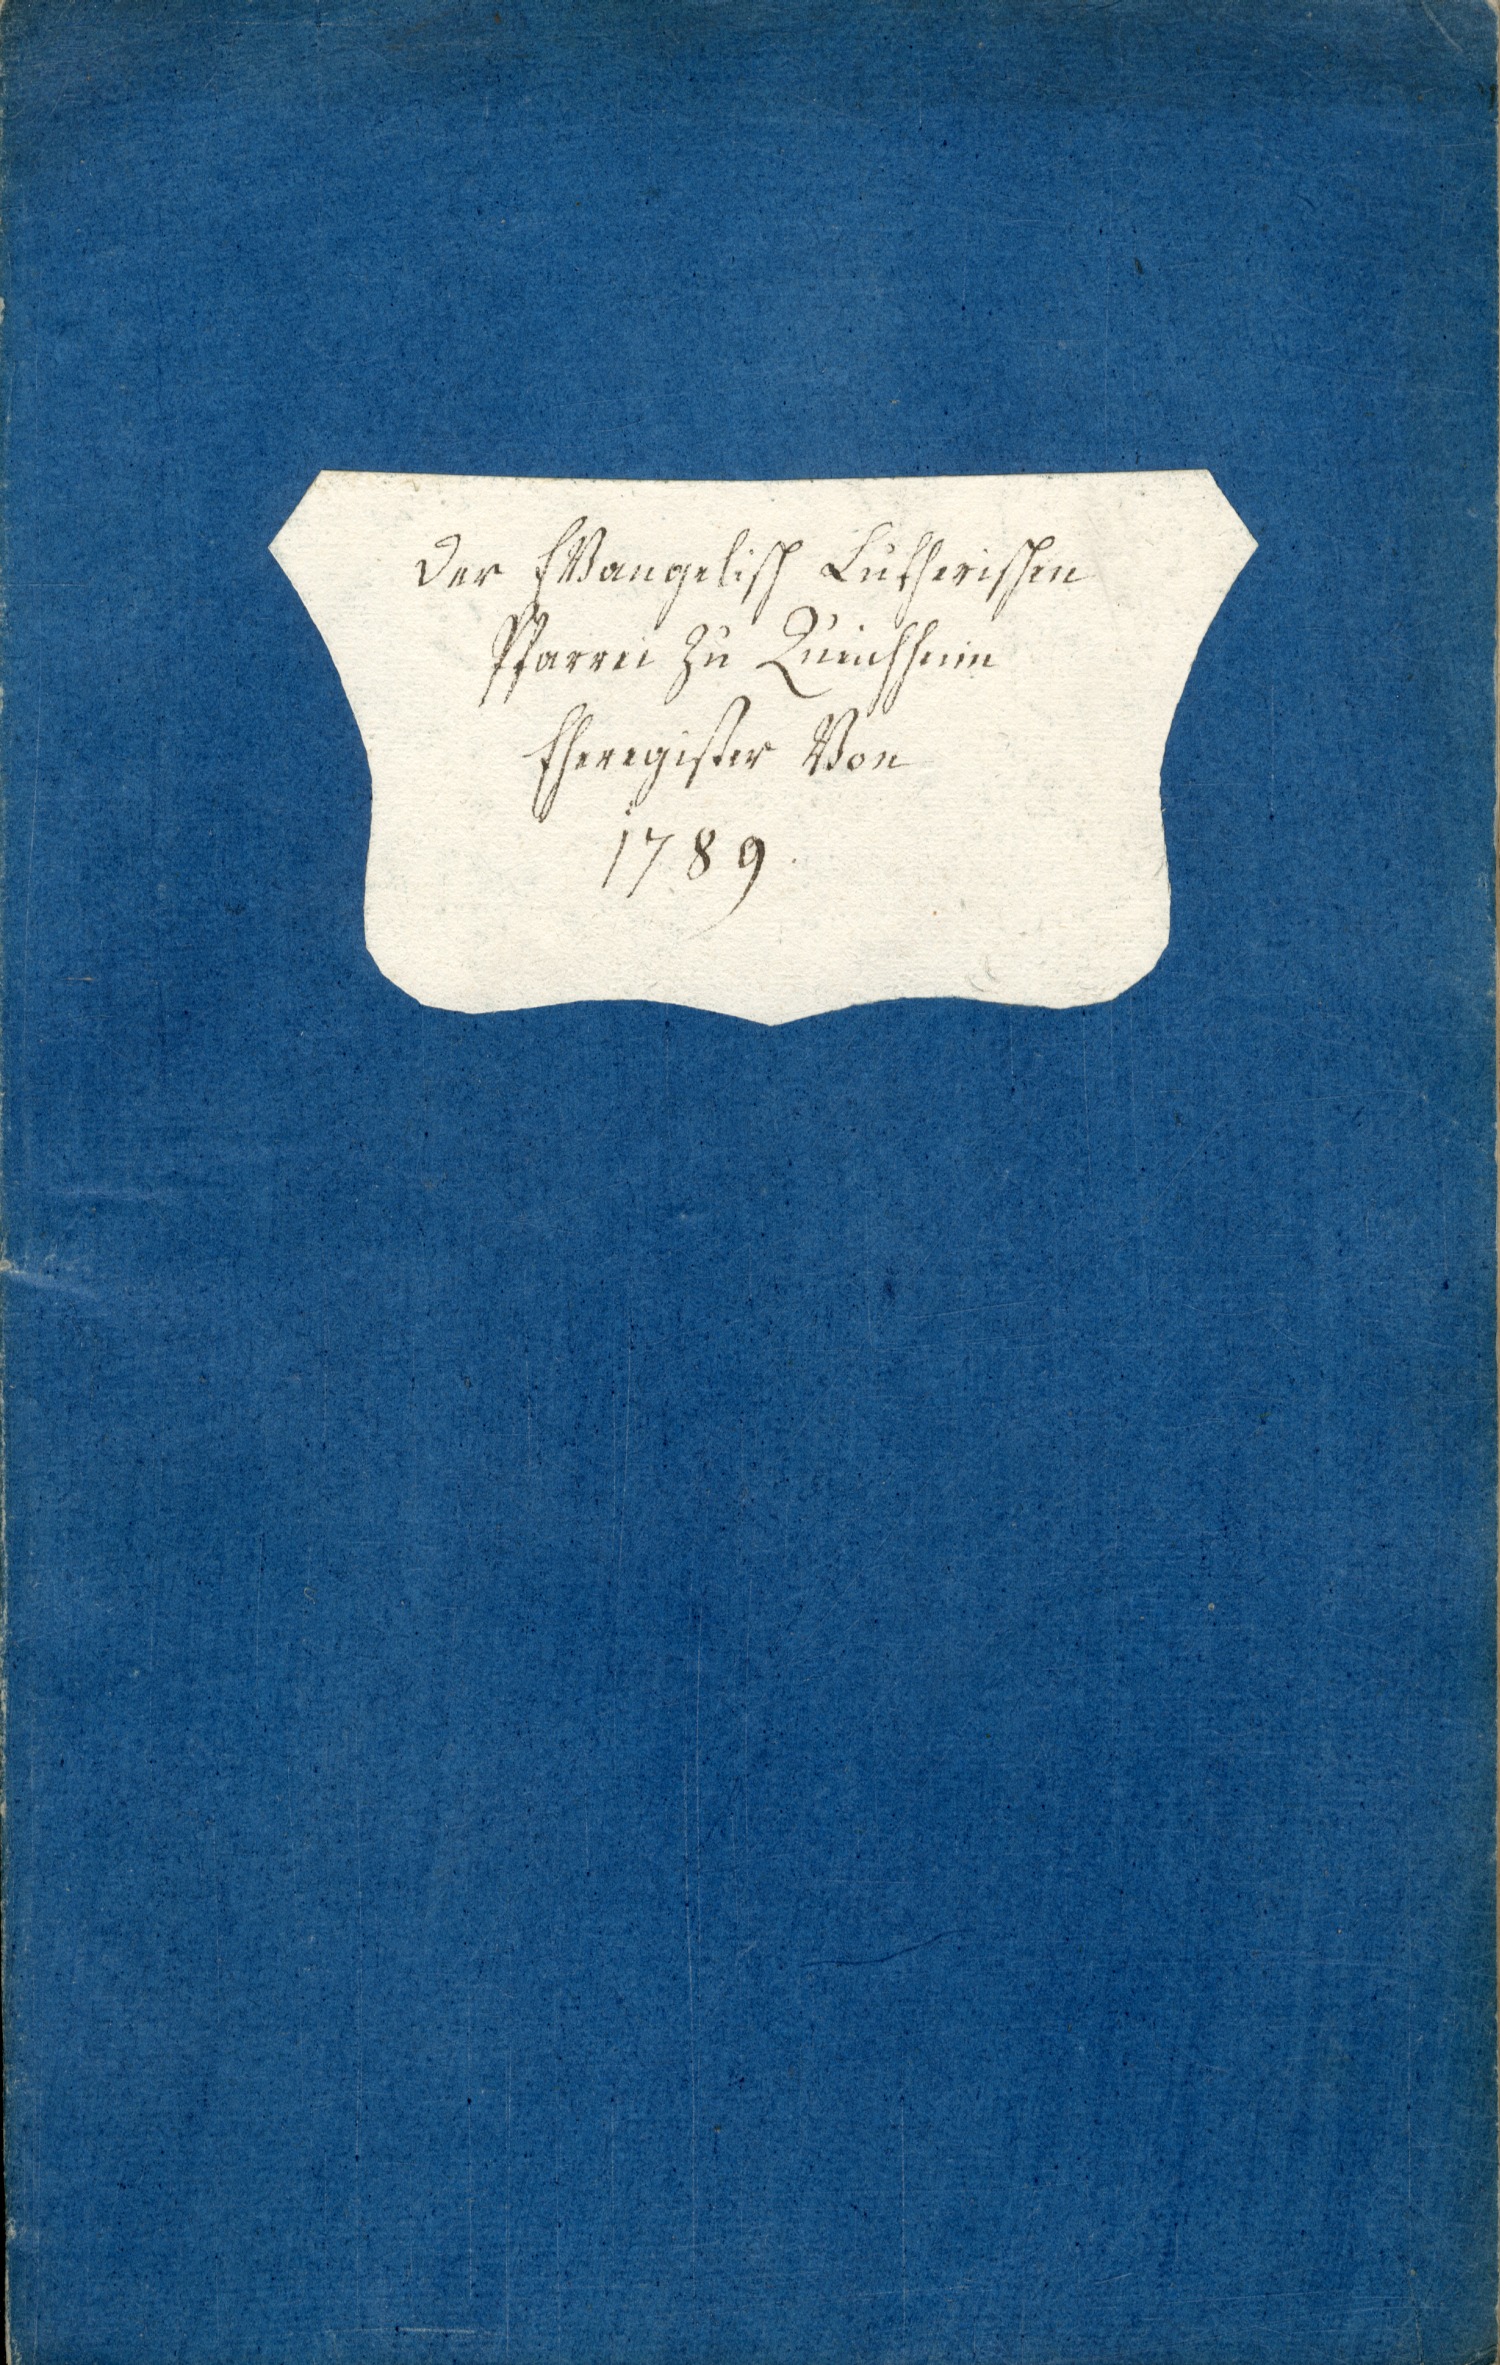 Der EVangelisch Lutherischen
Pfarrei zu Queichheim
Eheregister Von
1789.